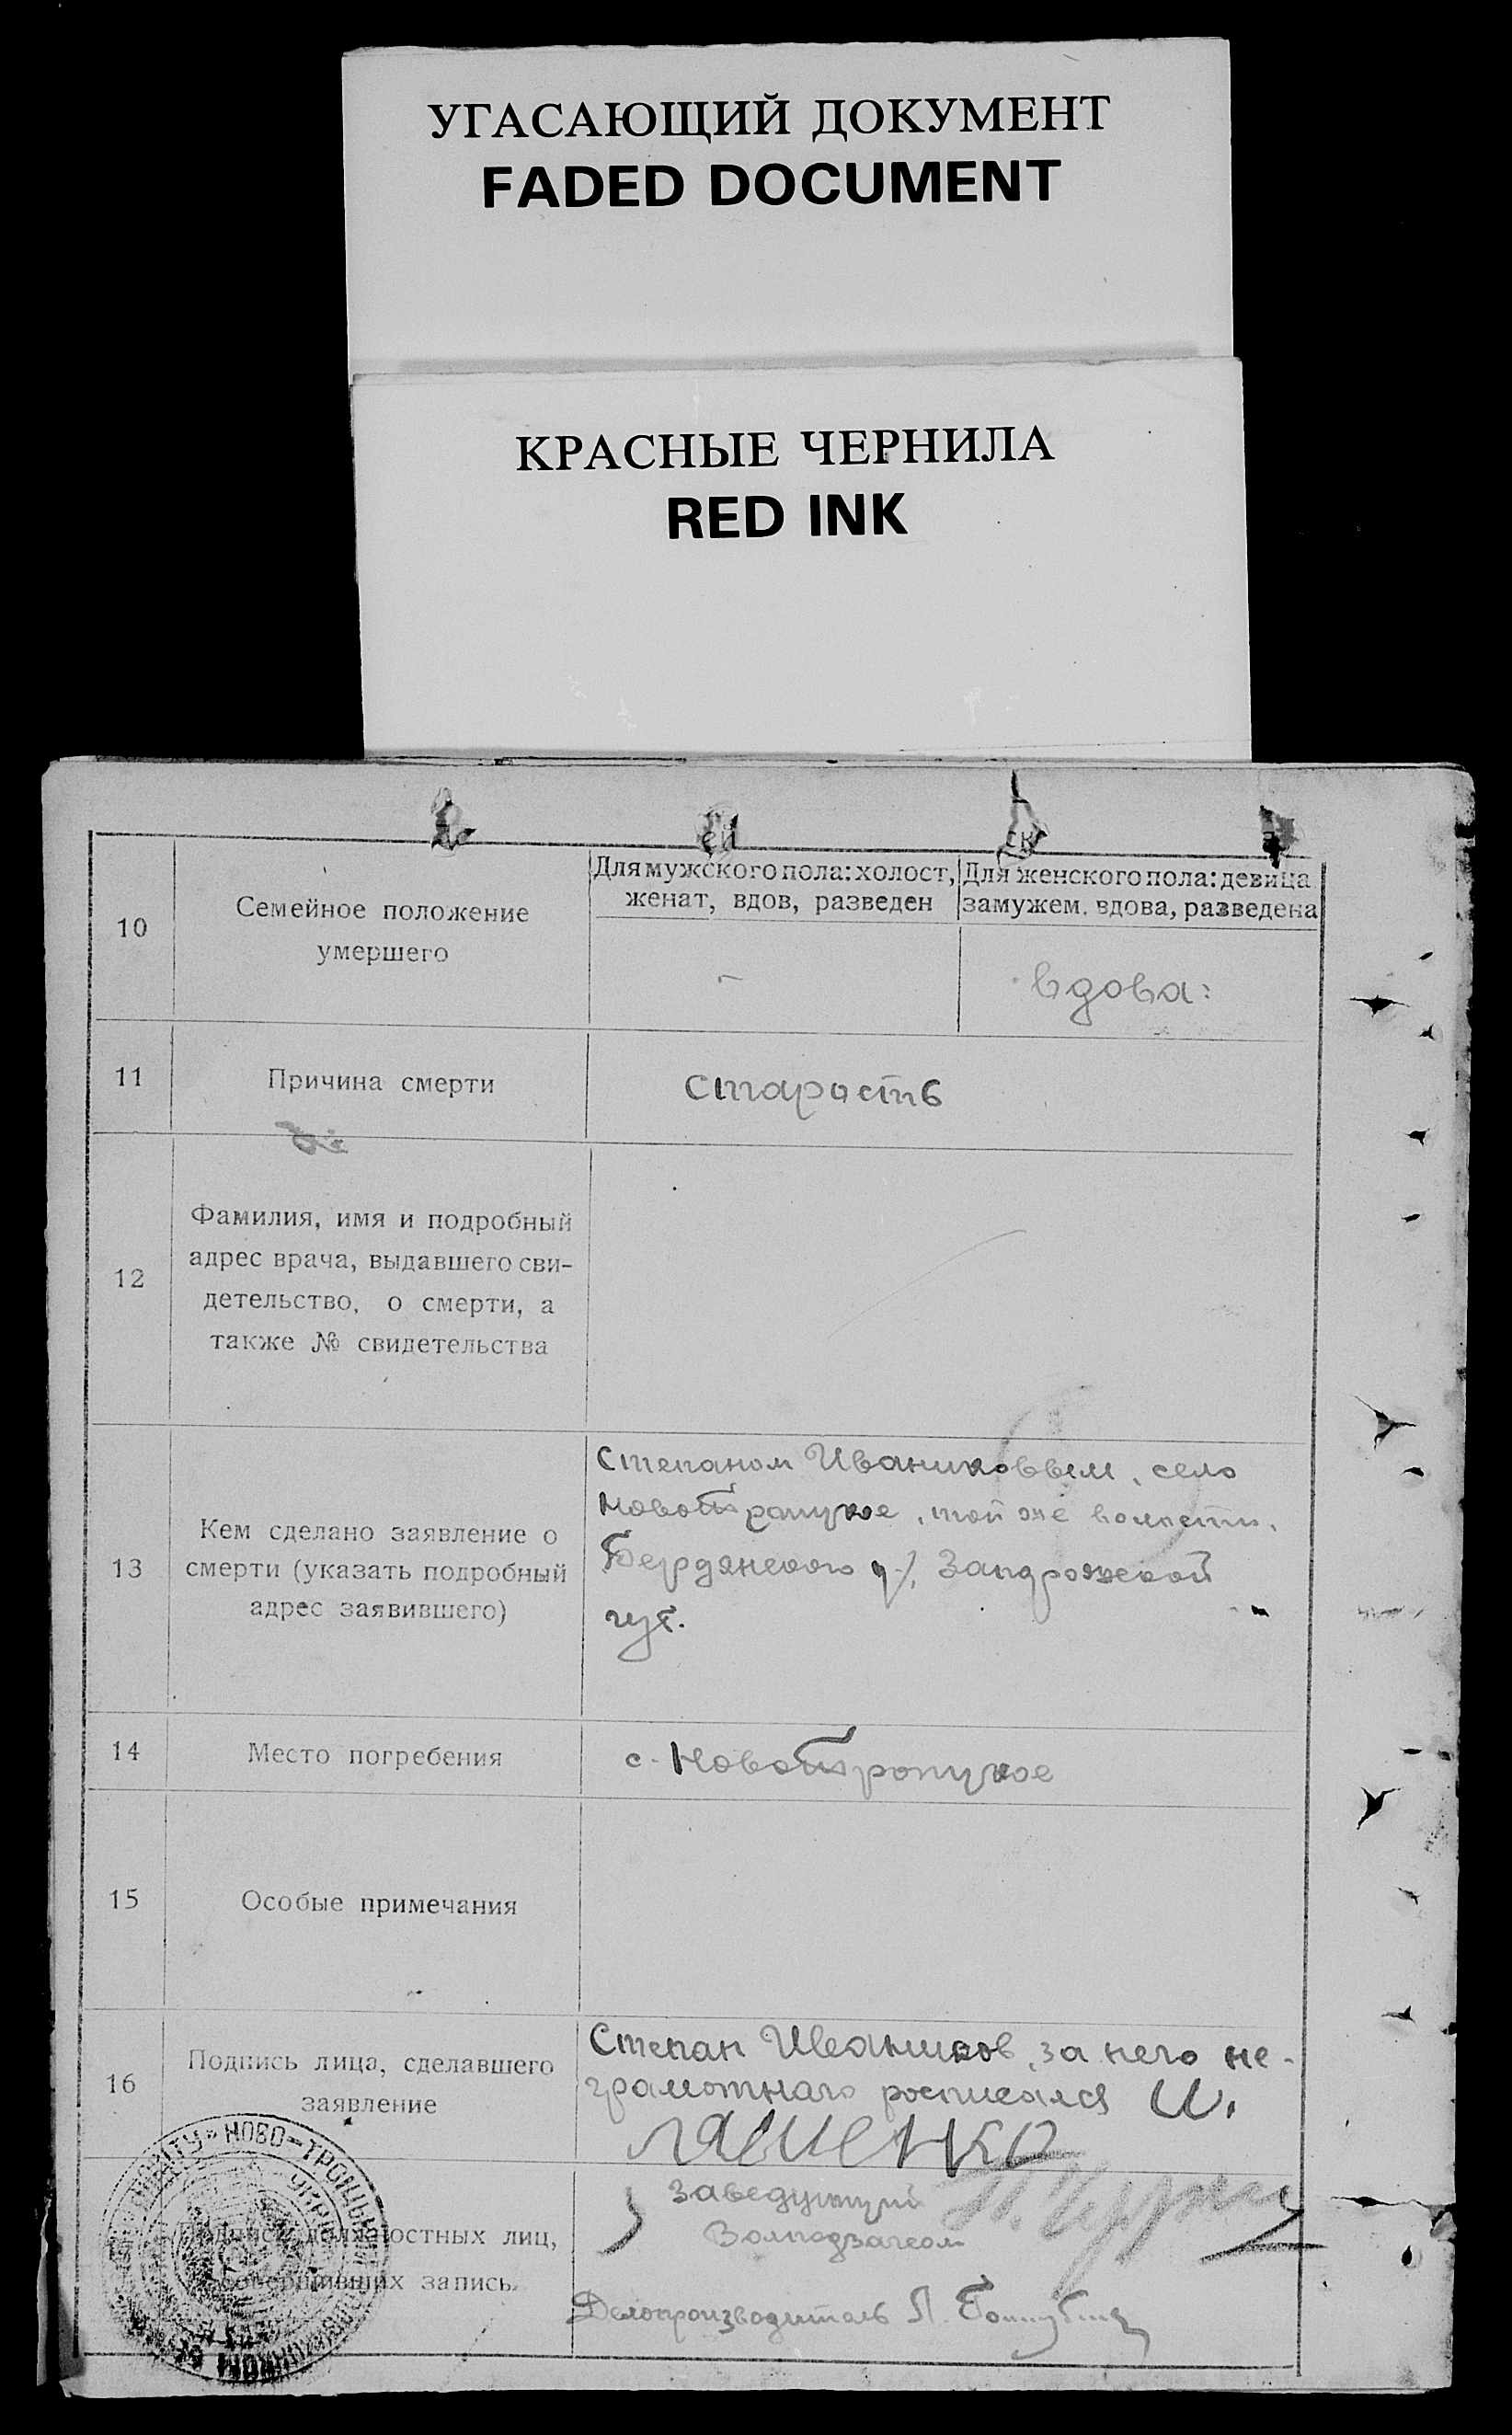 УГАСАЮЩИЙ ДОКУМЕНТ
FADED DOCUMENT
КРАСНЫЕ ЧЕРНИЛА
RED INK
10
Семейное положение
умершего
Для мужского пола: холост,
женат, вдов, разведен
Для женского пола: девица
замужем. вдова, разведена
-
вдова:
11
Причина смерти
Старость
12
Фамилия, имя и подробный
адрес врача, выдавшего сви-
детельство, о смерти, а
также № свидетельства
13
Кем сделано заявление о
смерти (указать подробный
адрес заявившего)
Степаном Иваниковвым, село
Новотроицкое, той же волости,
Бердянского у., Запорожской
губ.
14
Место погребения
с. Новотроицкое
15
Особые примечания
16
Подпись лица, сделавшего
заявление
Степан Иваников, за него не-
грамотнаго росписался И.
Ляшенко
Подписи должностных лиц,
совершивших запись.
Заведующий
Делопроизводитель П.
НОВО-ТРОИЦЬК